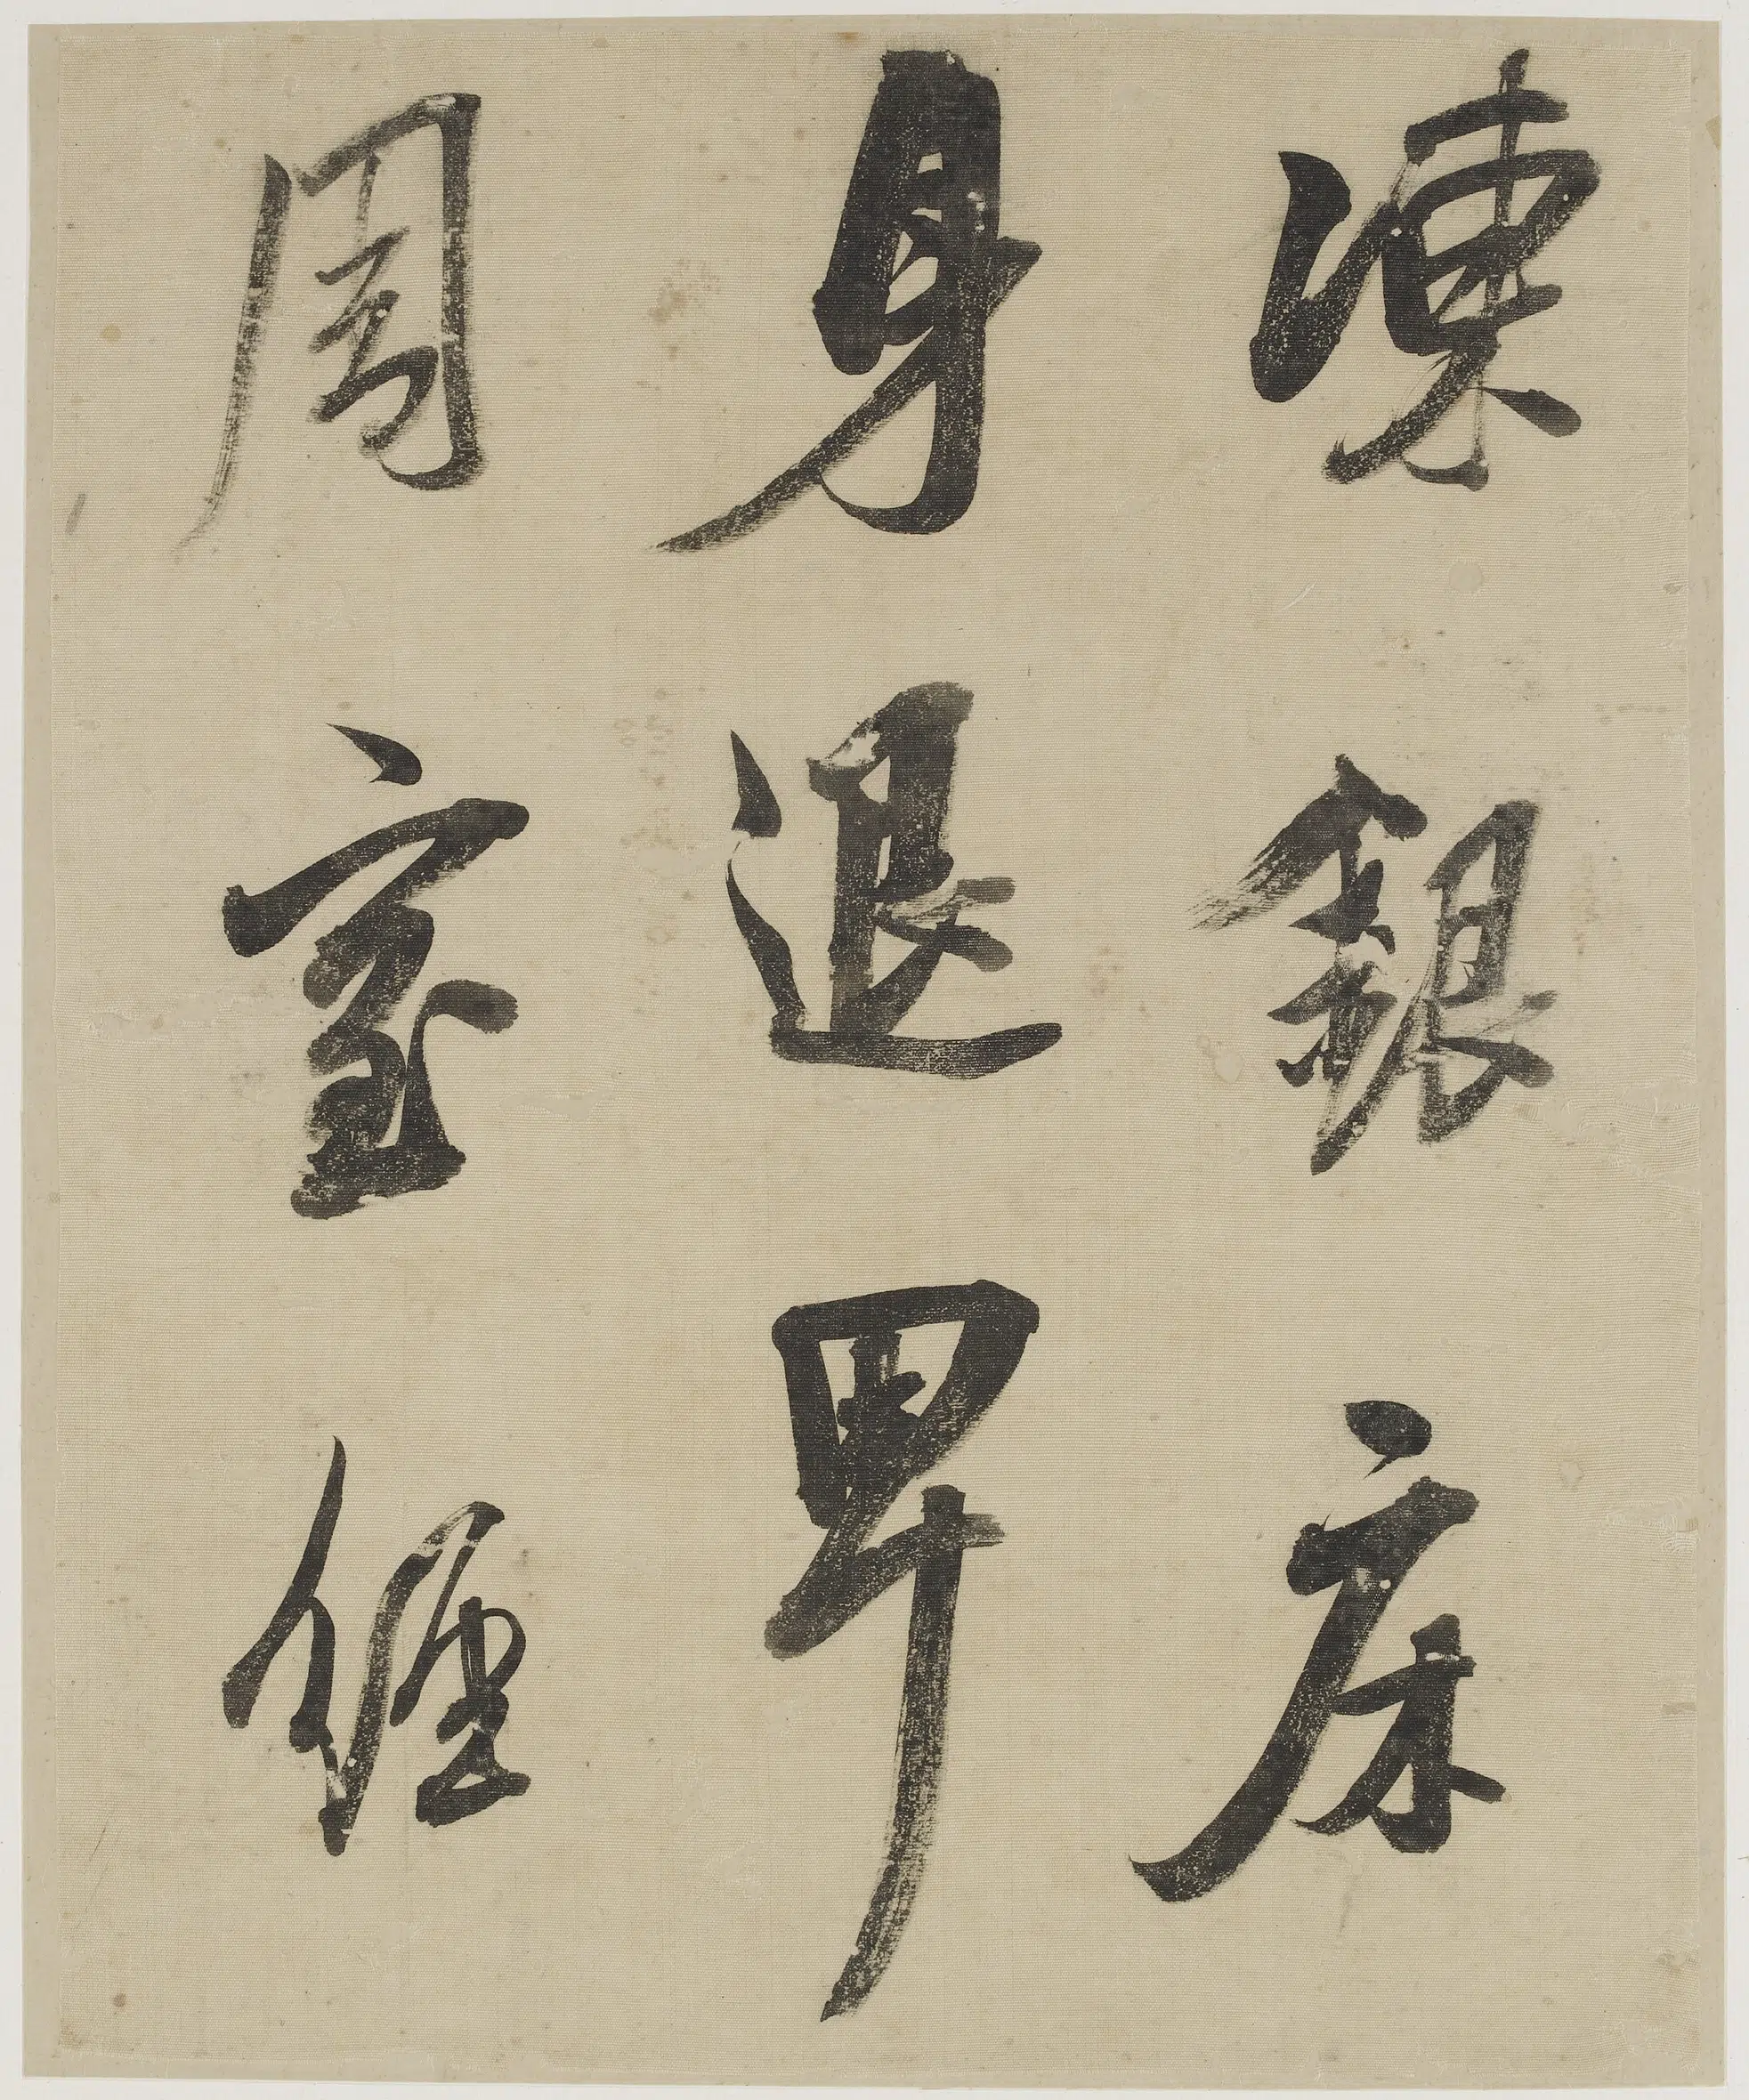 凍銀床
身退卑
周室經